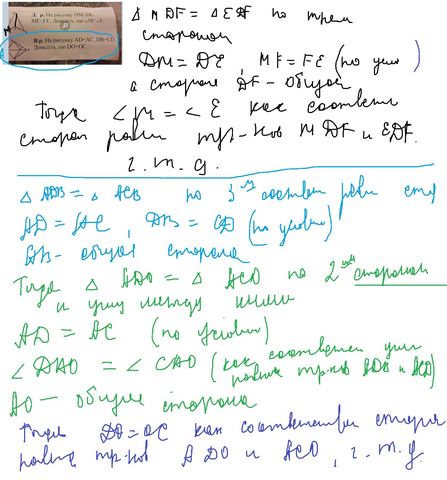 Д. р. На рисунке DM=DE,
MF=FE. Доказать, что ∠M=∠E.
В.р. На рисунке AD=AC, DB=CB.
Доказать, что DO=OC.
M
△ MDF = △ EDF по трем
сторонам
DM = DE, MF = FE (по усл)
а сторона DF – общая
Тогда ∠M = ∠E как соответств
сторон равн тр-ков MDF и EDF.
ч. т. д.
△ ADB = △ ACB по 3 соответ равн стор
AD = AC, DB = CB (по условию)
AB – общая сторона
Тогда △ ADO = △ ACO по 2 сторонам
и углу между ними
AD = AC (по условию)
∠DAO = ∠CAO (как соответствен углы
равных тр-ков ADB и ACB)
AO – общая сторона
Тогда DO = OC как соответствен сторон
равных тр-ков ADO и ACO, ч. т. д.